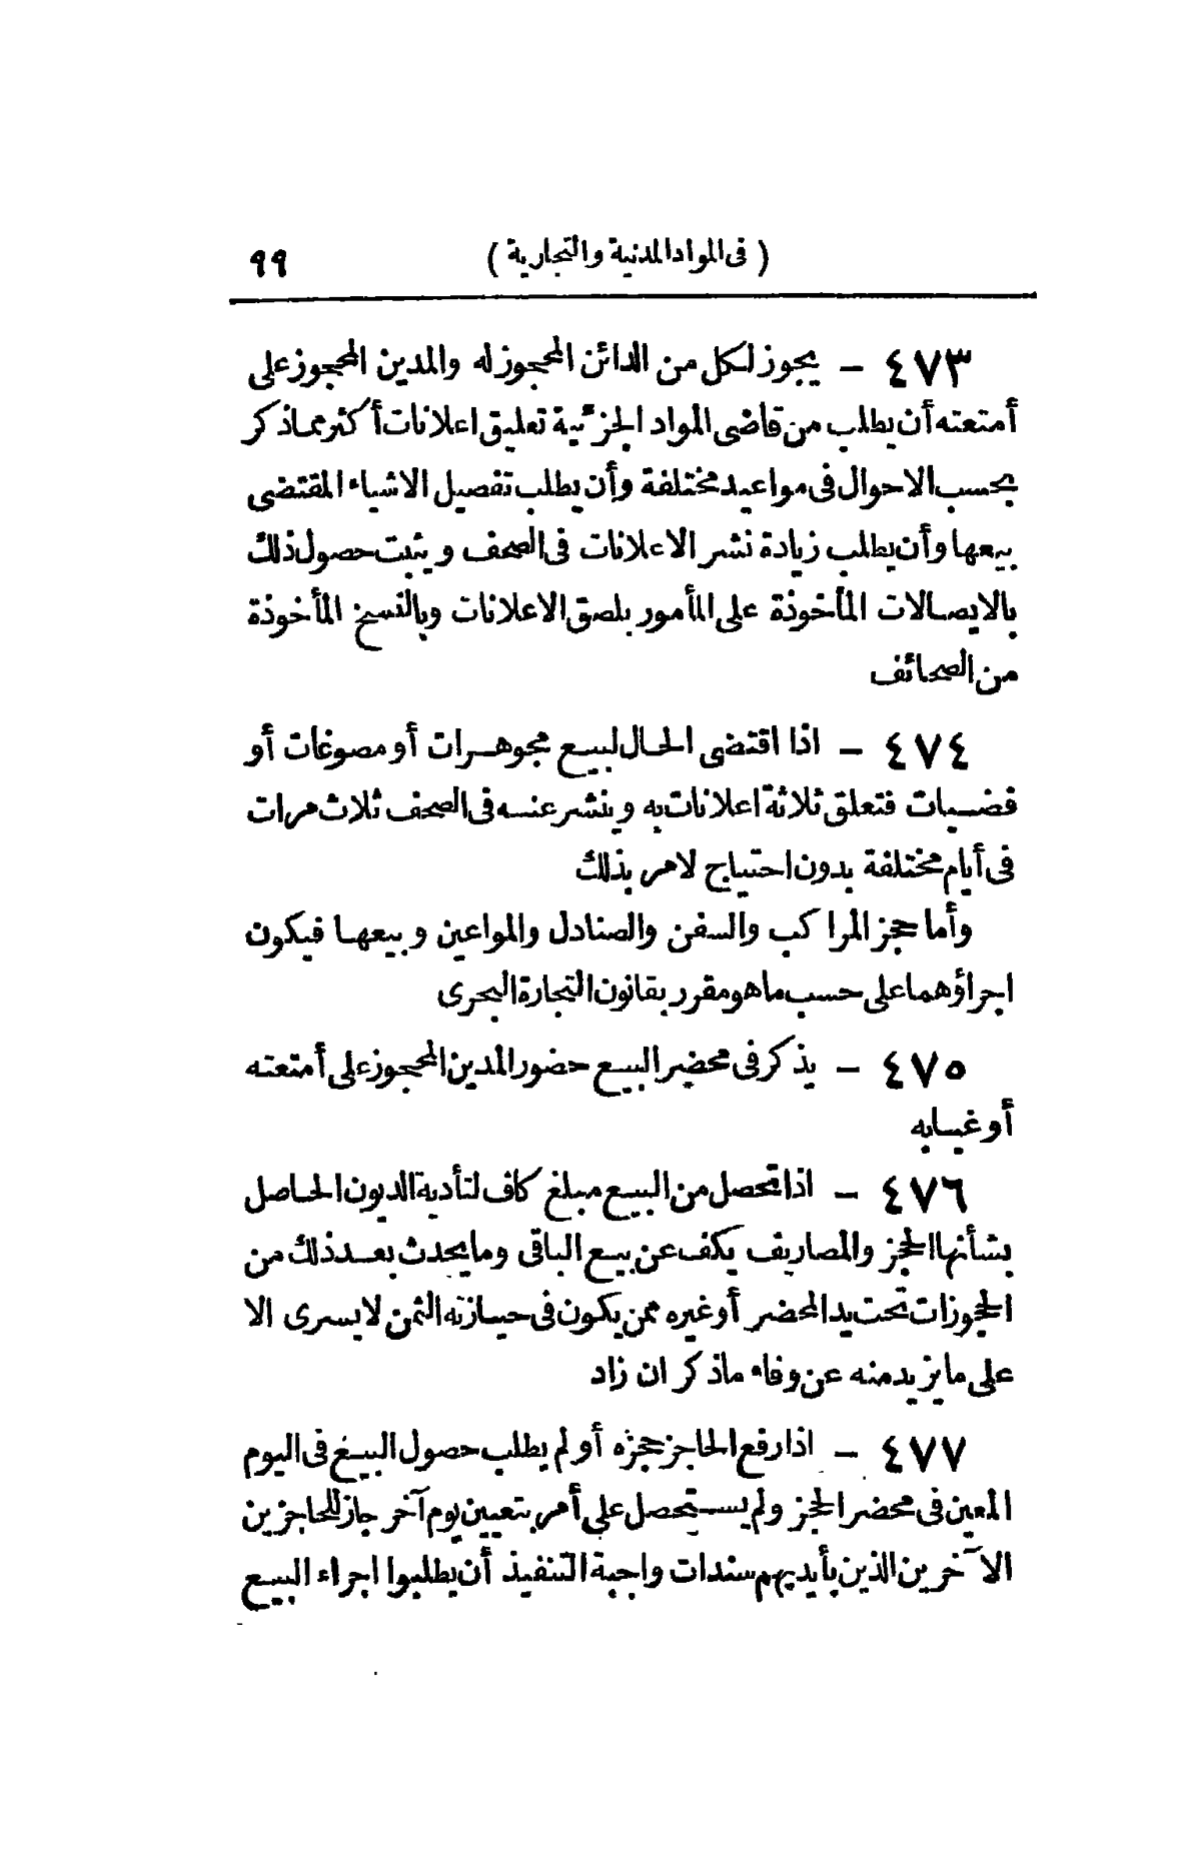 (فى المواد المدنية والتجارية) ٩٩
٤٧٣ – يجوز لكل من الدائن المحجوز له والمدين المحجوز على
أمتعته أن يطلب من قاضى المواد الجزئية تعليق اعلانات أكثر مما ذكر
بحسب الاحوال فى مواعيد مختلفة وأن يطلب تفصيل الاشياء المقتضى
بيعها وأن يطلب زيادة نشر الاعلانات فى الصحف ويثبت حصول ذلك
بالايصالات المأخوذة على المأمور بلصق الاعلانات وبالنسخ المأخوذة
من الصحائف
٤٧٤ – اذا اقتضى الحال لبيع مجوهرات أو مصوغات أو
فضيات فتعلق ثلاثة اعلانات به وينشر عنه فى الصحف ثلاث مرات
فى أيام مختلفة بدون احتياج لامر بذلك
وأما حجز المراكب والسفن والصنادل والمواعين وبيعها فيكون
اجراؤهما على حسب ما هو مقرر بقانون التجارة البحرى
٤٧٥ – يذكر فى محضر البيع حضور المدين المحجوز على أمتعته
أو غيابه
٤٧٦ – اذا تحصل من البيع مبلغ كاف لتأدية الديون الحاصل
بشأنها الحجز والمصاريف يكف عن بيع الباقى وما يحدث بعد ذلك من
الحجوزات تحت يد المحضر أو غيره ممن يكون فى حيازته الثمن لا يسرى الا
على ما يزيد منه عن وفاء ما ذكر ان زاد
٤٧٧ – اذا رفع الحاجز حجزه أو لم يطلب حصول البيع فى اليوم
المعين فى محضر الحجز ولم يستحصل على أمر بتعيين يوم آخر جاز للحاجزين
الآخرين الذين بأيديهم سندات واجبة التنفيذ أن يطلبوا اجراء البيع